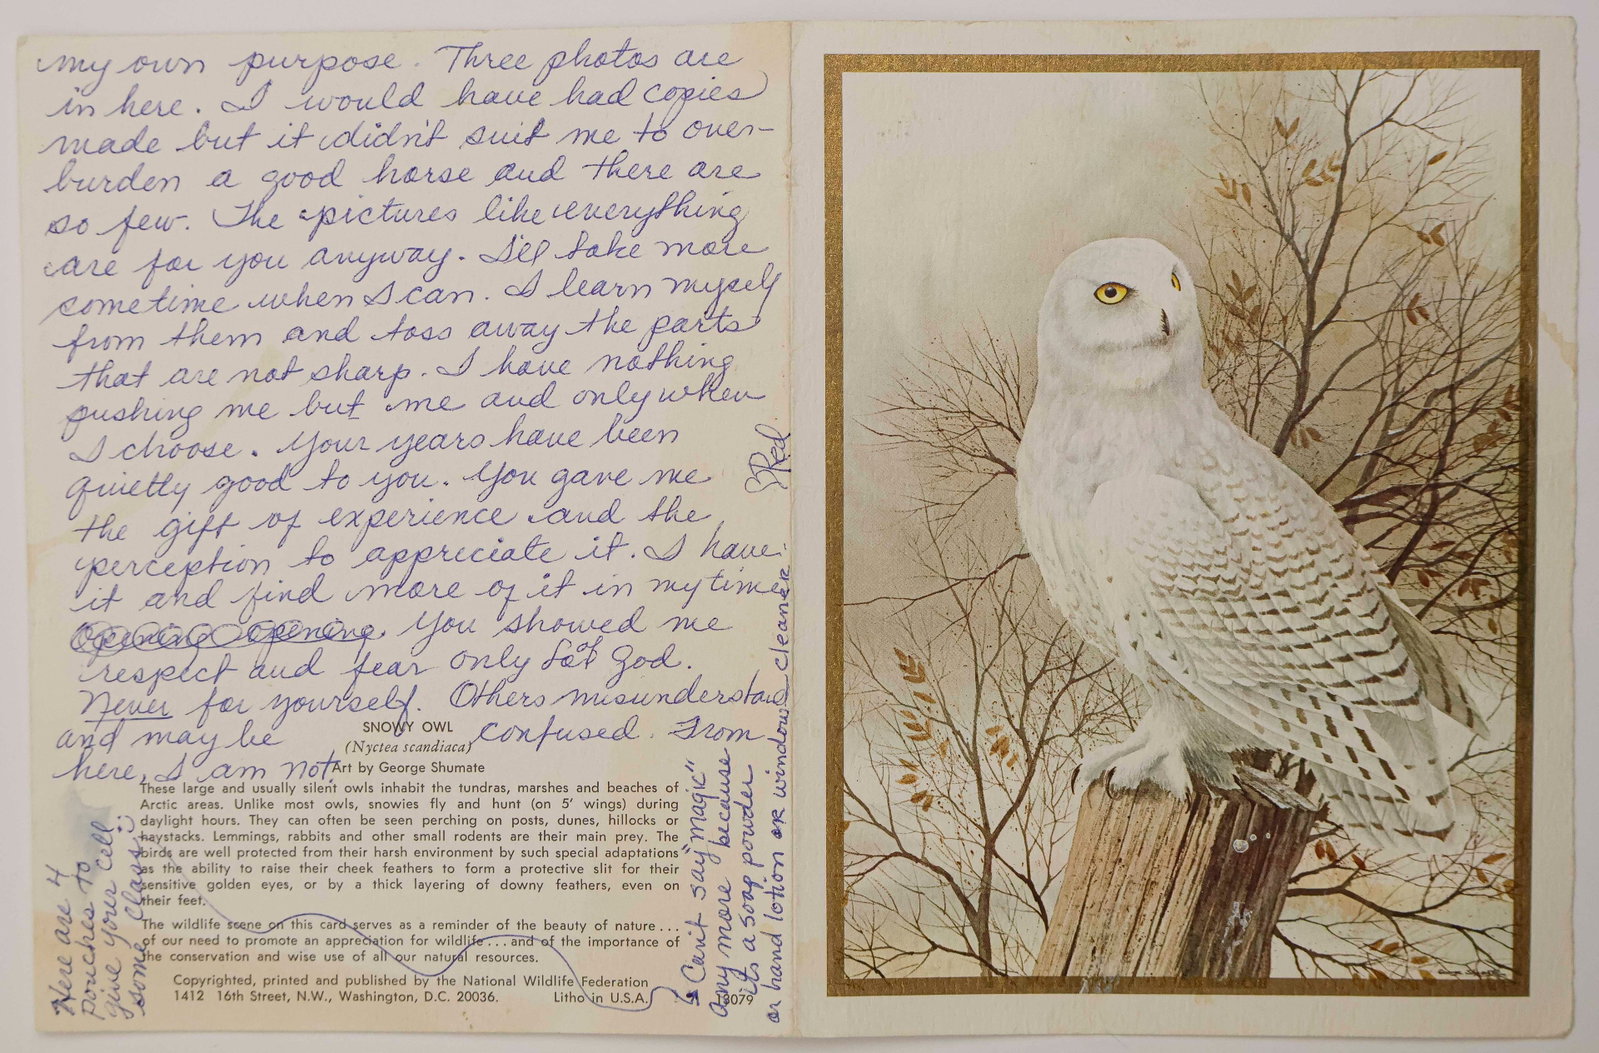 my own purpose. Three photos are
in here. I would have had copies
made but it didn't suit me to over-
burden a good horse and there are
so few. The pictures like everything
are for you anyway. I'll take more
sometime when I can. I learn myself
from them and toss away the parts
that are not sharp. I have nothing
pushing me but me and only when
I choose. Your years have been
quietly good to you. You gave me
the gift of experience and the
perception to appreciate it. I have
it and find more of it in my time
opening opening. You showed me
respect and fear only for of God.
Never for yourself. Others misunderstand
and may be confused. From
here, I am not.
Red
SNOWY OWL
(Nyctea scandiaca)
Art by George Shumate
These large and usually silent owls inhabit the tundras, marshes and beaches of
Arctic areas. Unlike most owls, snowies fly and hunt (on 5' wings) during
daylight hours. They can often be seen perching on posts, dunes, hillocks or
haystacks. Lemmings, rabbits and other small rodents are their main prey. The
birds are well protected from their harsh environment by such special adaptations
as the ability to raise their cheek feathers to form a protective slit for their
sensitive golden eyes, or by a thick layering of downy feathers, even on
their feet.
The wildlife scene on this card serves as a reminder of the beauty of nature...
of our need to promote an appreciation for wildlife...and of the importance of
the conservation and wise use of all our natural resources.
Copyrighted, printed and published by the National Wildlife Federation
1412 16th Street, N.W., Washington, D.C. 20036. Litho in U.S.A.
13079
Here are 4
pouches to
give your cell
some class :)
Can't say "magic"
any more because
its a soap powder
or hand lotion or window cleaner